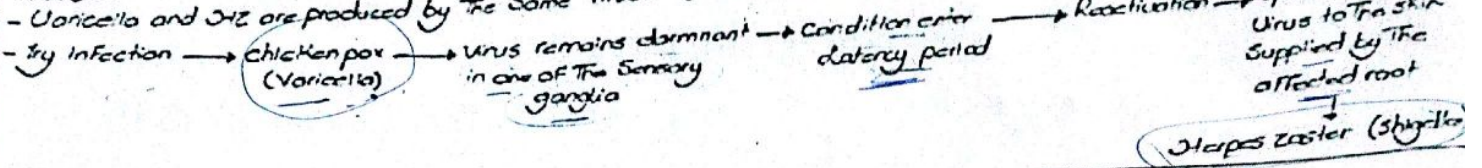 - Varicella and HZ are produced by the same
- Iry infection → chickenpox (Varicella) → virus remains dormnant in one of the sensory ganglia → Condition enter Latency period → Reactivation →
virus to the skin
supplied by the
affected root
↓
Herpes zoster (shingles)